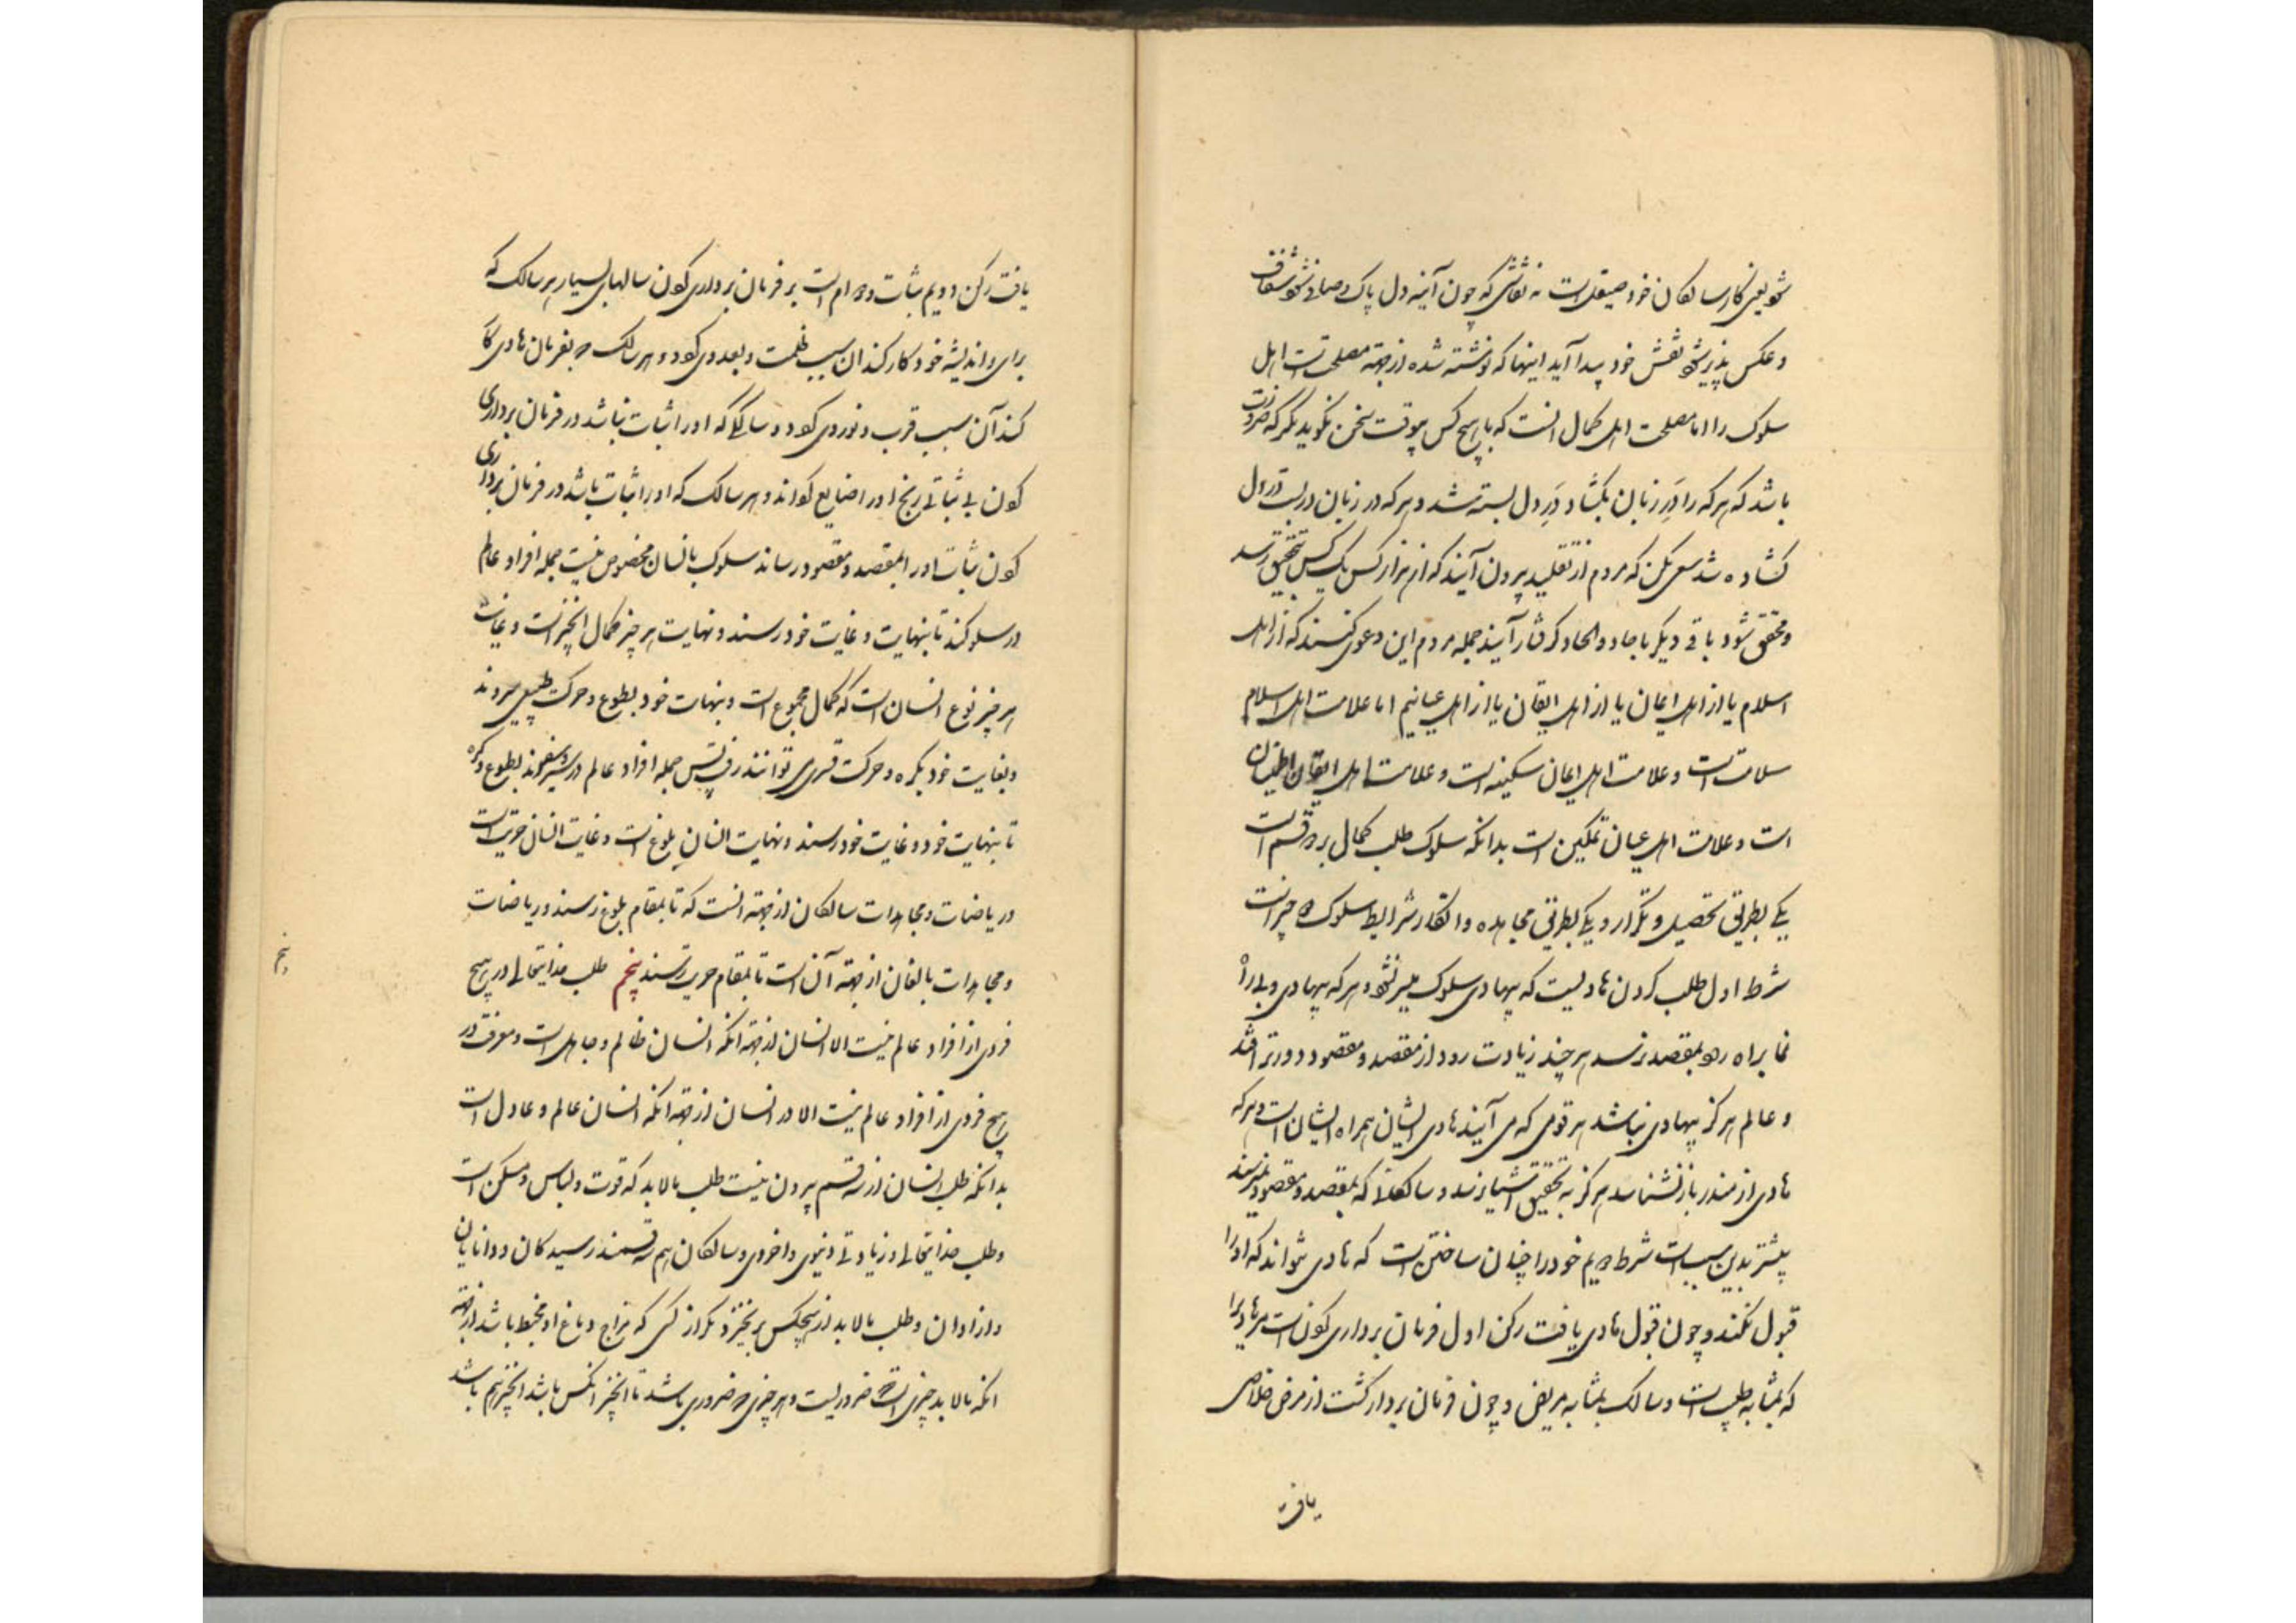 شود یعنی کار سالکان خود صیقلست نه نقاشی که چون آینه دل پاک و صافی شود و شفاف
و عکس پذیر شود نقش خود پیدا آید اینها که نوشته شده از جهة مصلحت اهل
سلوک را اما مصلحت اهل کمال انست که با هیچ کس بیوقت سخن نگوید مگر که ضرورت
باشد که هر که را دَرِ زبان بکشاد دَرِ دل بسته شد و هر که در زبان در بست در دل
کشاده شد سعی بکن که مردم از تقلید بیرون آیند که از هزار کس یک کس بتحقیق رسد
و محقق شود باقی دیگر با جاد و الحاد کرفتار آیند جمله مردم این دعوی کنند که از اهل
اسلام یا از اهل ایمان یا از اهل ایقان یا از اهل عیانیم اما علامت اهل اسلام
سلامت است و علامت اهل ایمان سکینه است و علامت اهل ایقان اطمینان
است و علامت اهل عیان تمکین است بدانکه سلوک طلب کمال بر دو قسم است
یکی بطریق تحصیل و تکرار و یکی بطریق مجاهده و اذکار شرایط سلوک چیز است
شرط اول طلب کردن هادیست که بیهادی سلوک میسر نشود و هر که بیهادی و بی راه
نما براه رود بمقصد نرسد هر چند زیادت رود از مقصد و مقصود دورتر افتد
و عالم هرکز بیهادی نباشد هر قومی که می آیند هادی ایشان همراه ایشان است و هر که
هادی از منذر باز نشناسد هرکز به تحقیق اشیا نرسد و سالکان که بمقصد و مقصود نمیرسند
بیشتر بدین سبب است شرط دویم خود را چنان ساختن است که هادی تواند که او را
قبول کند و چون قبول هادی یافت رکن اول فرمان برداری کردن است مر هادی را
که بمثابه طبیب است و سالک بمثابه مریض و چون فرمان بردار کشت از مرض خلاصی
یافت
یافت رکن دویم ثبات و دوام است بر فرمان برداری کردن سالهای بسیار هر سالک که
برای و اندیشه خود کار کند ان سبب ظلمت و بعد وی کردد و هر سالک که بفرمان هادی کار
کند آن سبب قرب و نور وی کردد و سالکی که او را ثبات نباشد در فرمان برداری
کردن بی ثباتی رنج او را ضایع کرداند و هر سالک که او را ثبات باشد در فرمان برداری
کردن ثبات او را بمقصد و مقصود رساند سلوک بانسان مخصوص نیست جمله افراد عالم
در سلوکند تا بنهایت و غایت خود رسند و نهایت هر چیز کمال انچیز است و غایت
هر چیز نوع انسان است که کمال مجموع است و بنهایت خود بطوع و حرکت طبیعی میروند
و بغایت خود بکره و حرکت قسری توانند رفت پس جمله افراد عالم در سیر و سفرند بطوع و کره
تا بنهایت خود و غایت خود رسند و نهایت انسان بلوغ است و غایت انسان حریت است
و ریاضات و مجاهدات سالکان از جهة انست که تا بمقام بلوغ رسند و ریاضات
و مجاهدات بالغان از جهة آن است تا بمقام حریت رسند پنجم طلب خدایتعالی در هیچ
فردی از افراد عالم نیست الا انسان از جهة انکه انسان ظالم و جاهل است و معرفت در
هیچ فردی از افراد عالم نیست الا در انسان از جهة انکه انسان عالم و عادل است
بدانکه طلب انسان از سه قسم بیرون نیست طلب مالابد که قوت و لباس و مسکن است
و طلب خدایتعالی و زیادتی دنیوی و اخروی و سالکان هم سه قسمند رسیدکان و دانایان
و ازادان و طلب مالابد از هیچکس برنخیزد مکر از کسی که مزاج دماغ او مخبط باشد از جهة
انکه مالابد چیزی است که ضروریست و هر چیزی که ضروری باشد تا انکس باشد انچیز هم باشد
پنجم